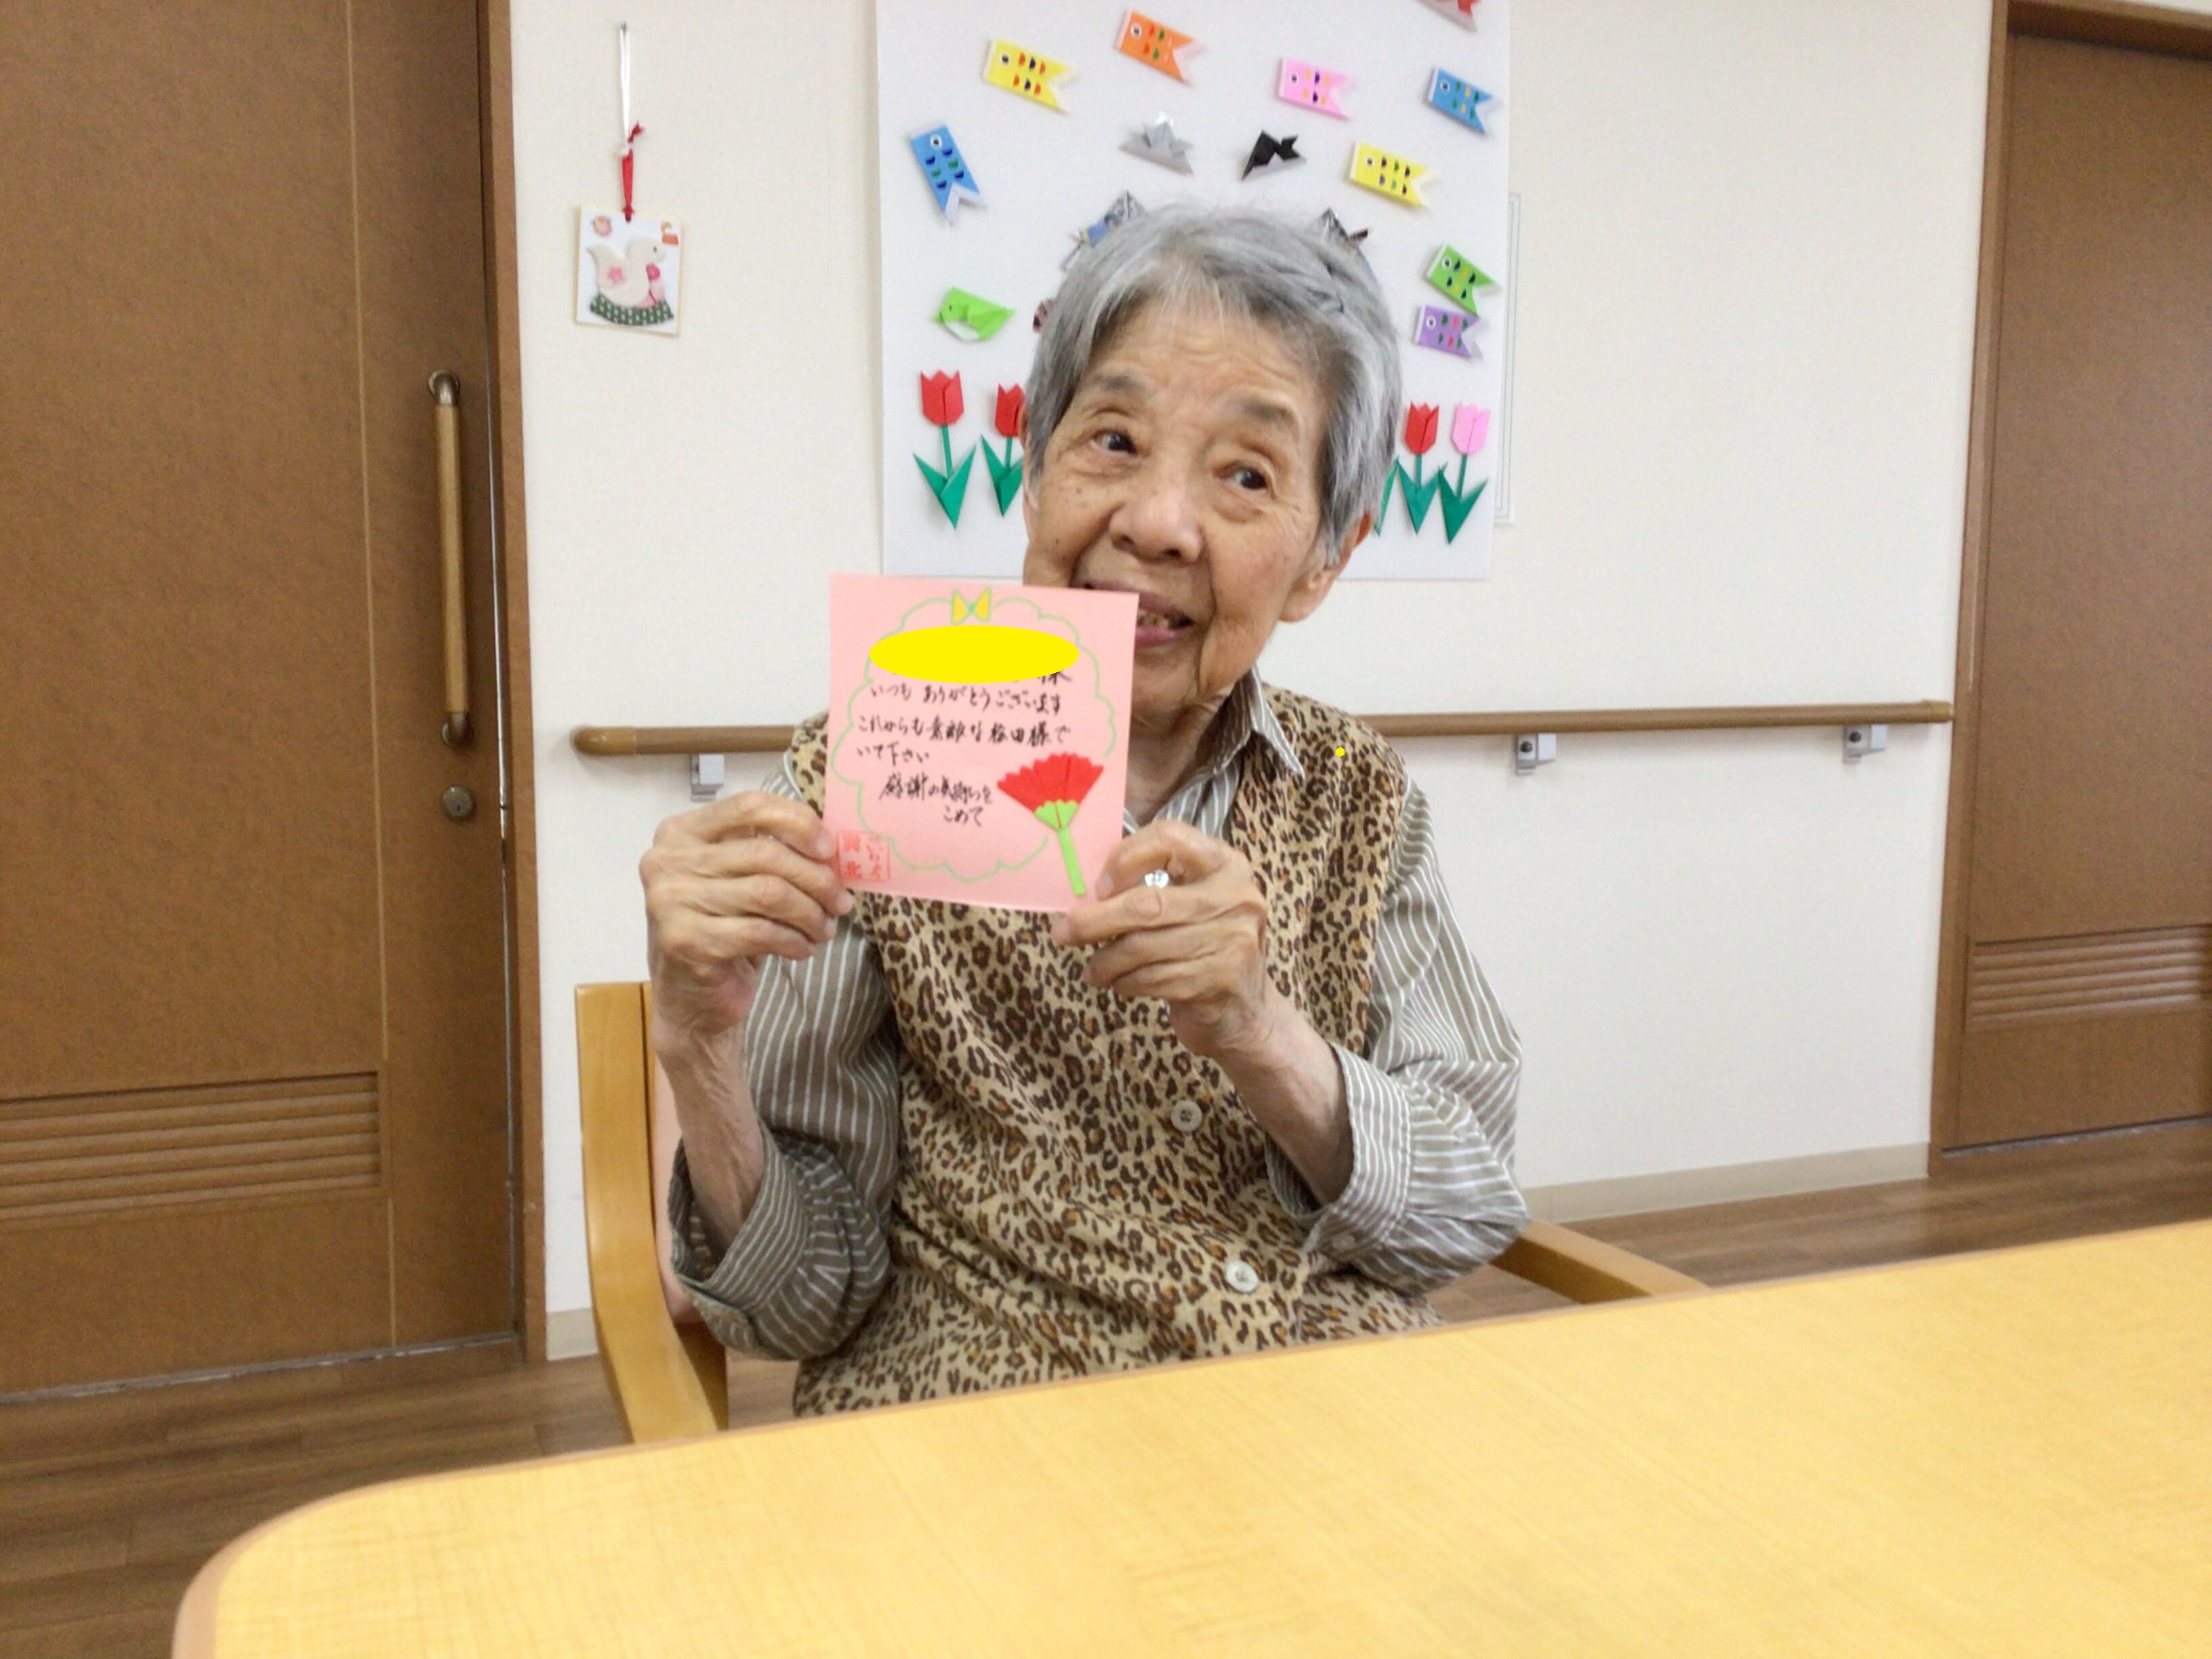 様
いつも ありがとうございます
これからも素敵な 様で
いて下さい
感謝の気持ちを
こめて